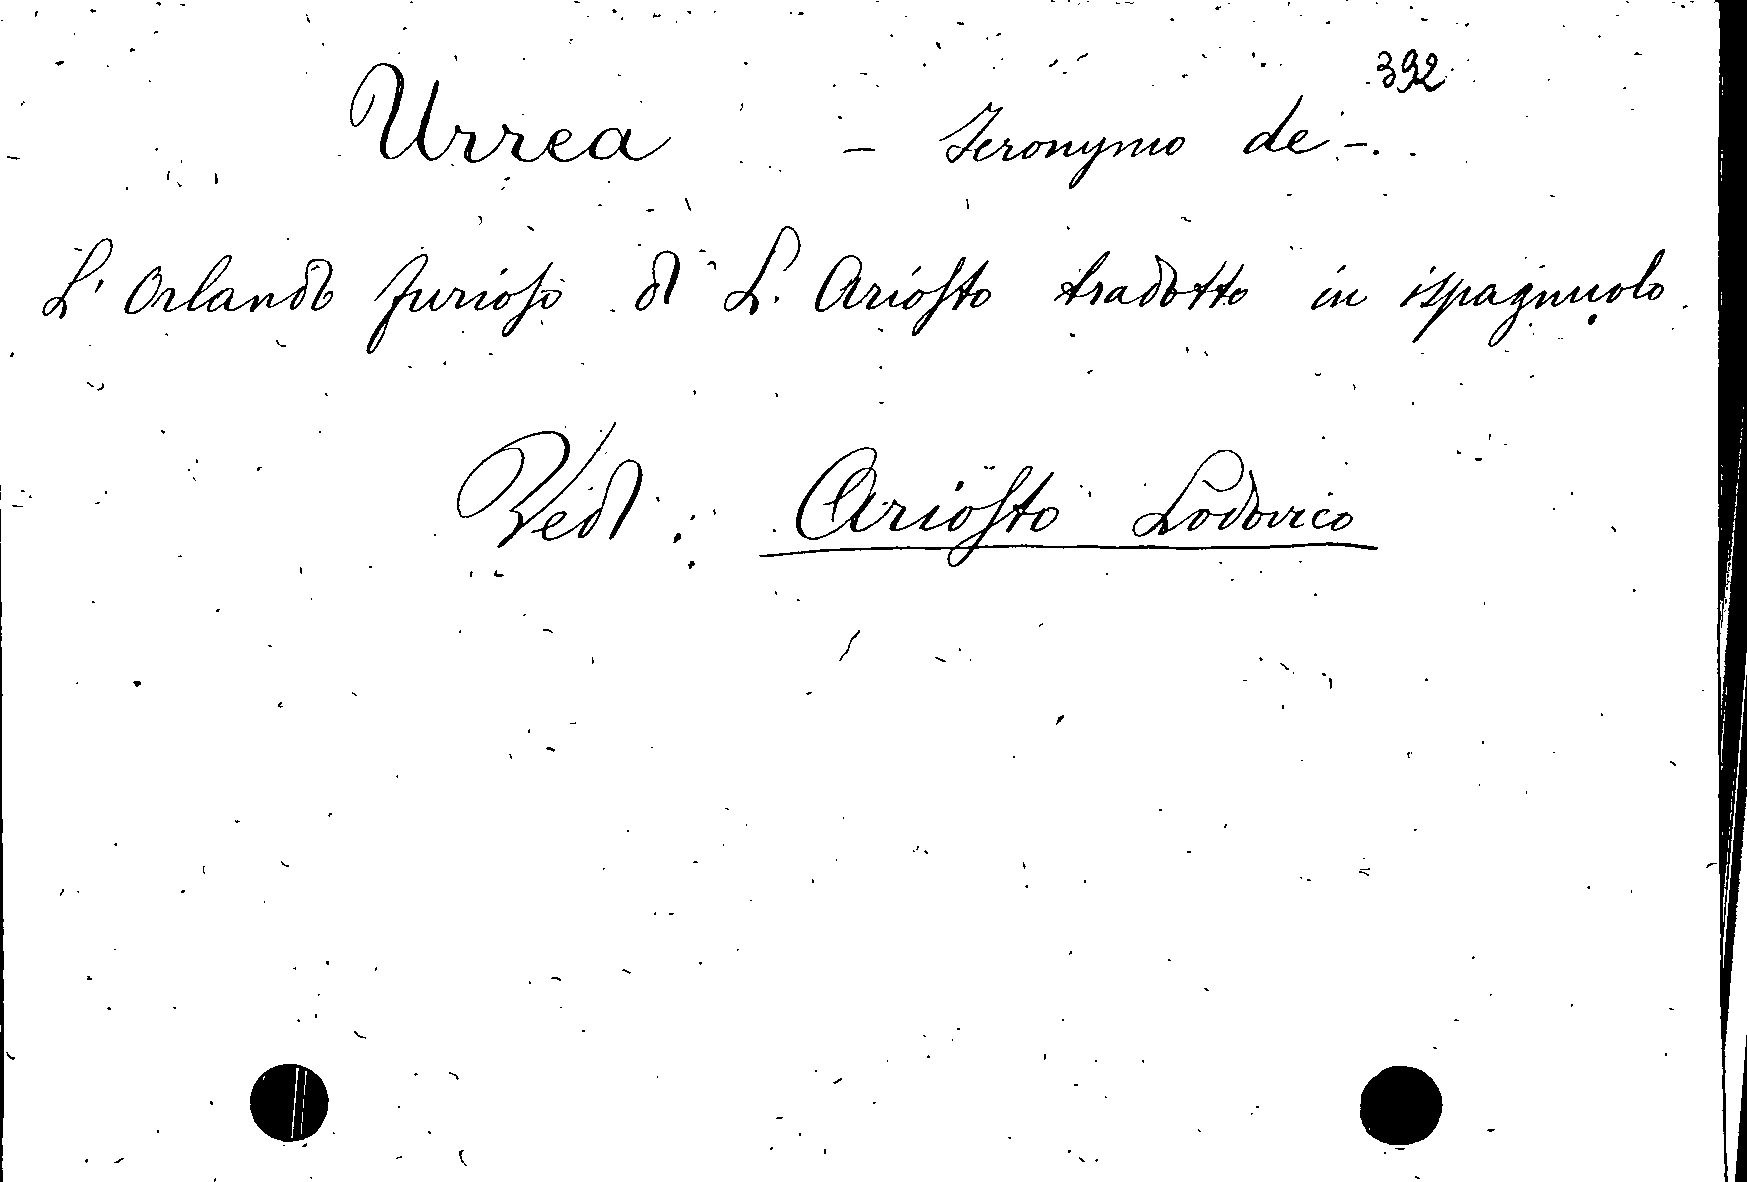 392
Urrea - Jeronymo de -.
L' Orlando furioso di L. Ariosto tradotto in ispagnuolo
Vedi: Ariosto Lodovico